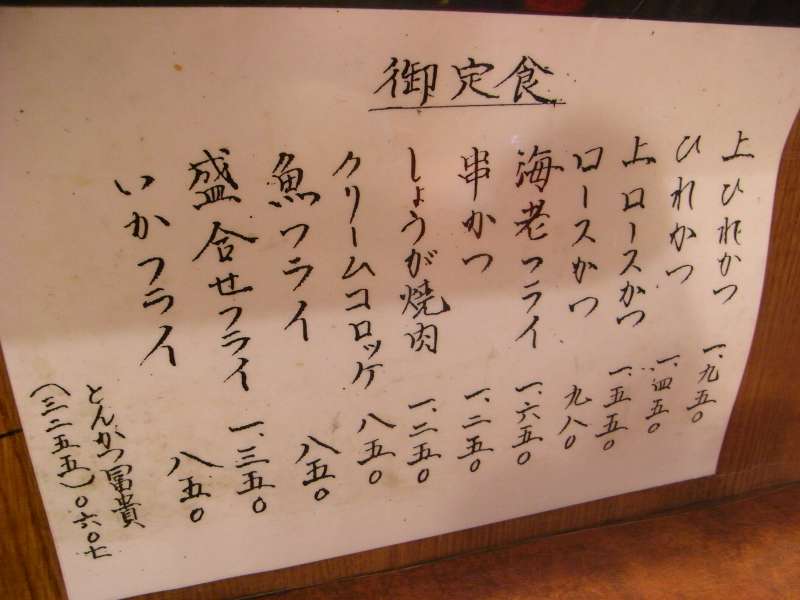 御定食
上ひれかつ 一、九五〇
ひれかつ 一、四五〇
上ロースかつ 一、五五〇
ロースかつ 九八〇
海老フライ 一、六五〇
串かつ 一、二五〇
しょうが焼肉 一、二五〇
クリームコロッケ 八五〇
魚フライ 八五〇
盛合せフライ 一、三五〇
いかフライ 八五〇
とんかつ冨貴
(三二五五)〇六〇七